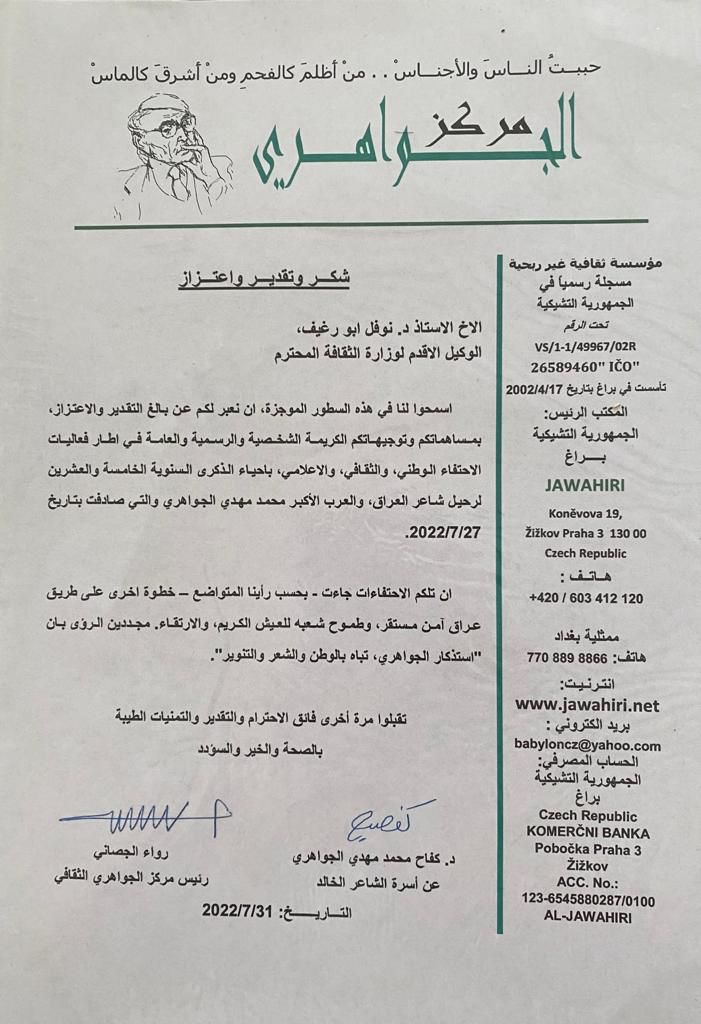 حببتُ الناسَ والأجناسْ . . منْ أظلمَ كالفحمِ ومنْ أشرقَ كالماسْ
مركز
الجواهري
شكر وتقدير واعتزاز
الاخ الاستاذ د. نوفل ابو رغيف،
الوكيل الاقدم لوزارة الثقافة المحترم
اسمحوا لنا في هذه السطور الموجزة، ان نعبر لكم عن بالغ التقدير والاعتزاز،
بمساهماتكم وتوجيهاتكم الكريمة الشخصية والرسمية والعامة في اطار فعاليات
الاحتفاء الوطني، والثقافي، والاعلامي، باحياء الذكرى السنوية الخامسة والعشرين
لرحيل شاعر العراق، والعرب الأكبر محمد مهدي الجواهري والتي صادفت بتاريخ
2022/7/27.
ان تلكم الاحتفاءات جاءت - بحسب رأينا المتواضع – خطوة اخرى على طريق
عراق آمن مستقر، وطموح شعبه للعيش الكريم، والارتقاء. مجددين الرؤى بان
"استذكار الجواهري، تباه بالوطن والشعر والتنوير".
تقبلوا مرة أخرى فائق الاحترام والتقدير والتمنيات الطيبة
بالصحة والخير والسؤدد
د. كفاح محمد مهدي الجواهري
عن أسرة الشاعر الخالد
رواء الجصاني
رئيس مركز الجواهري الثقافي
التاريخ: 2022/7/31
مؤسسة ثقافية غير ربحية
مسجلة رسمياً في
الجمهورية التشيكية
تحت الرقم
VS/1-1/49967/02R
26589460" IČO"
تأسست في براغ بتاريخ 2002/4/17
المكتب الرئيس:
الجمهورية التشيكية
براغ
JAWAHIRI
Koněvova 19,
Žižkov Praha 3 130 00
Czech Republic
هاتف :
+420 / 603 412 120
ممثلية بغداد
هاتف: 8866 889 770
انترنيت:
www.jawahiri.net
بريد الكتروني :
babyloncz@yahoo.com
الحساب المصرفي:
الجمهورية التشيكية
براغ
Czech Republic
KOMERČNI BANKA
Pobočka Praha 3
Žižkov
ACC. No.:
123-6545880287/0100
AL-JAWAHIRI